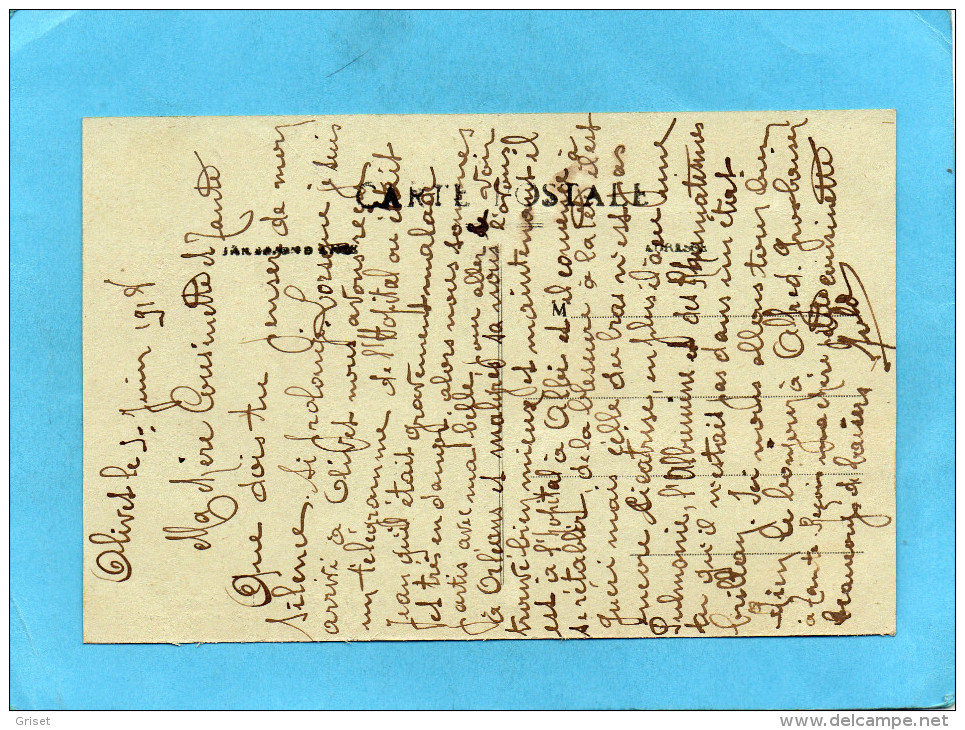 Olivet le 5 Juin 1918
Ma chère Cousinette et Tante
Que dois tu penser de mon
silence si prolongé. Lorsque je suis
arrivé à Olivet nous avons reçu
un telegramme de l'Hopital où était
Jean qu'il était gravement malade
et très en danger, alors nous sommes
partis avec ma belle pour aller le voir
à Orleans et malgré sa nous l'avons
trouvé bien mieux et maintenant il
est à l'hopital à Albi et il commence à
se rétablir, de la blessure à la tête il est
guéri mais celle du bras n'est pas
encore cicatrisée, en plus il a eu une
Pulmonie, l'Albumine et des Rhumatismes
tu qu'il n'était pas dans un état
brillant. Ici nous allons tous bien
bien le bonjour à Alfred. gros baiser
à tante Reçois ma chère cousinette
beaucoup de baisers
CARTE POSTALE
ADRESSE
M
Griset
http://www.delcampe.net